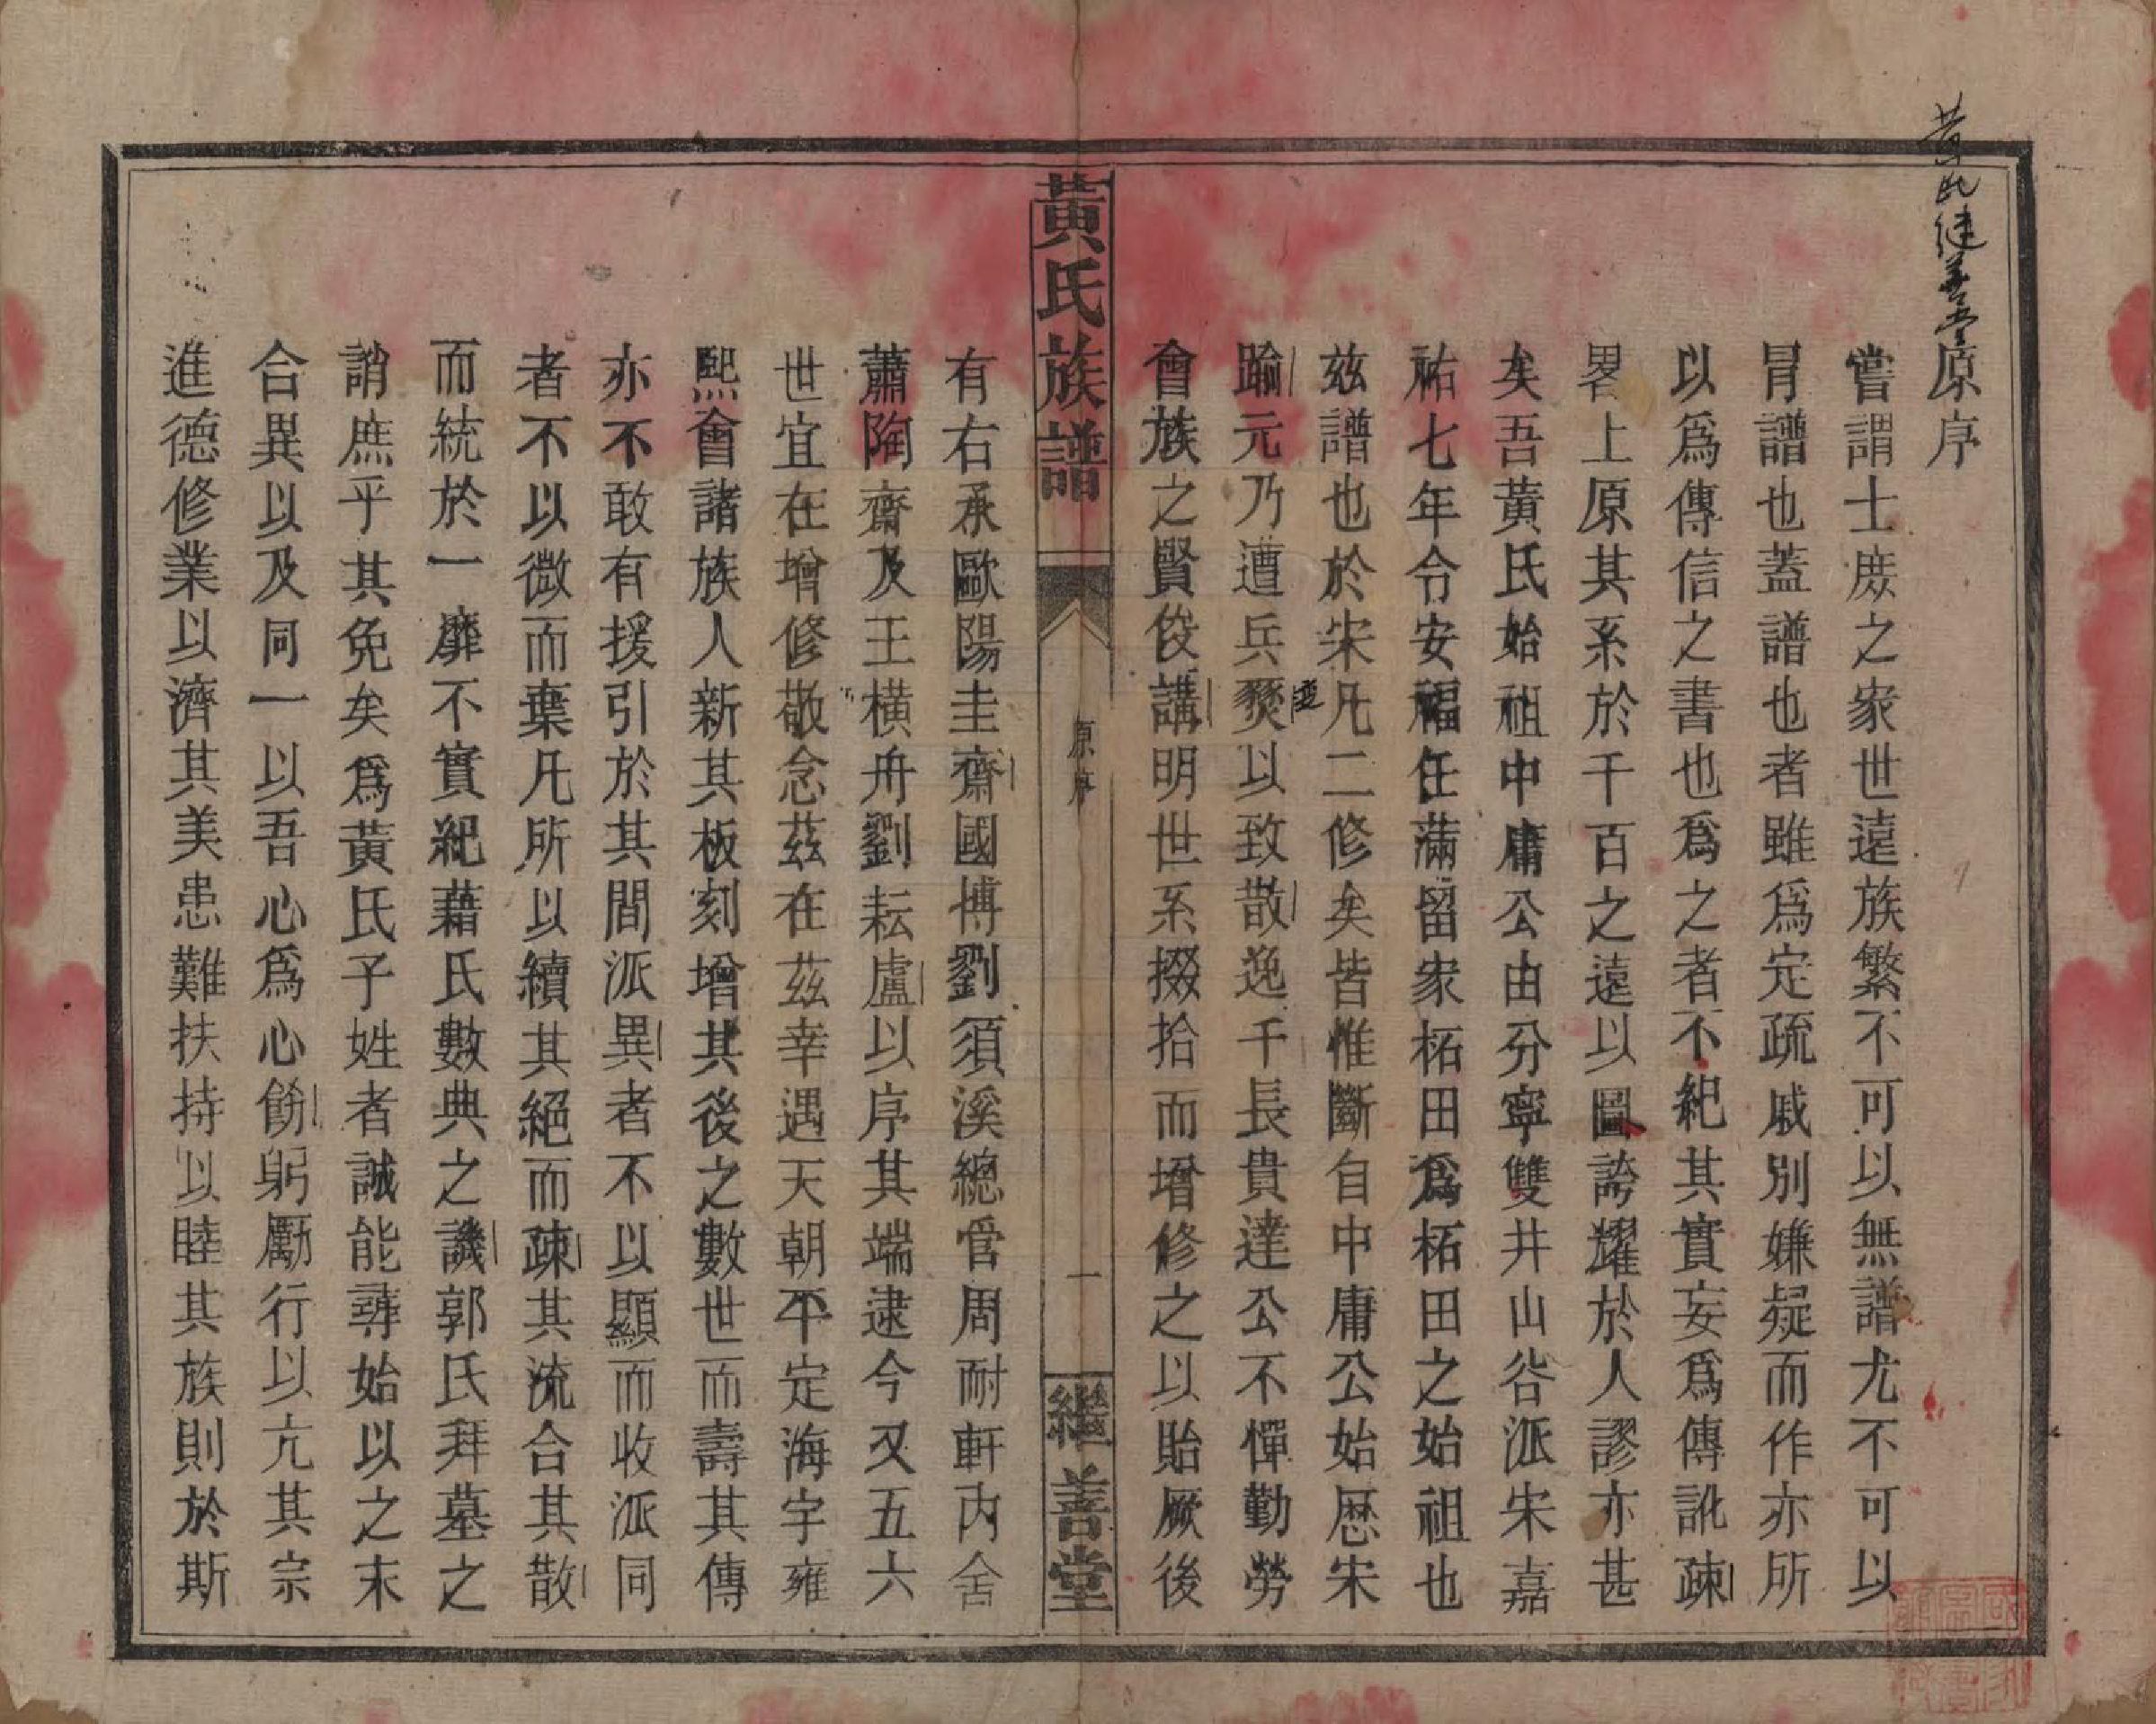 黄氏繼善堂
原序
嘗謂士庶之家世遠族繁不可以無譜尤不可以
冐譜也蓋譜也者雖爲定疏戚別嫌疑而作亦所
以爲傳信之書也爲之者不紀其實妄爲傳訛疎
畧上原其系於千百之遠以圖誇耀於人謬亦甚
矣吾黄氏始祖中庸公由分寧雙井山谷派宋嘉
祐七年令安福任滿留家柘田爲柘田之始祖也
兹譜也於宋凡二修矣皆惟斷自中庸公始歷宋
踰元乃遭兵燹以致散逸千長貴達公不憚勤勞
會族之賢俊講明世系掇拾而增修之以貽厥後
黃氏族譜
原序
一
繼善堂
有右承歐陽圭齋國博劉須溪總管周耐軒内舍
蕭陶齋及王橫舟劉耘盧以序其端逮今又五六
世宜在增修敬念茲在茲幸遇天朝平定海宇雍
熙會諸族人新其板刻增其後之數世而壽其傳
亦不敢有援引於其間派異者不以顯而收派同
者不以微而棄凡所以續其絕而疎其流合其散
而統於一靡不實紀藉氏數典之譏郭氏拜墓之
誚庶乎其免矣爲黃氏子姓者誠能尋始以之末
合異以及同一以吾心爲心飭躬勵行以亢其宗
進德修業以濟其美患難扶持以睦其族則於斯